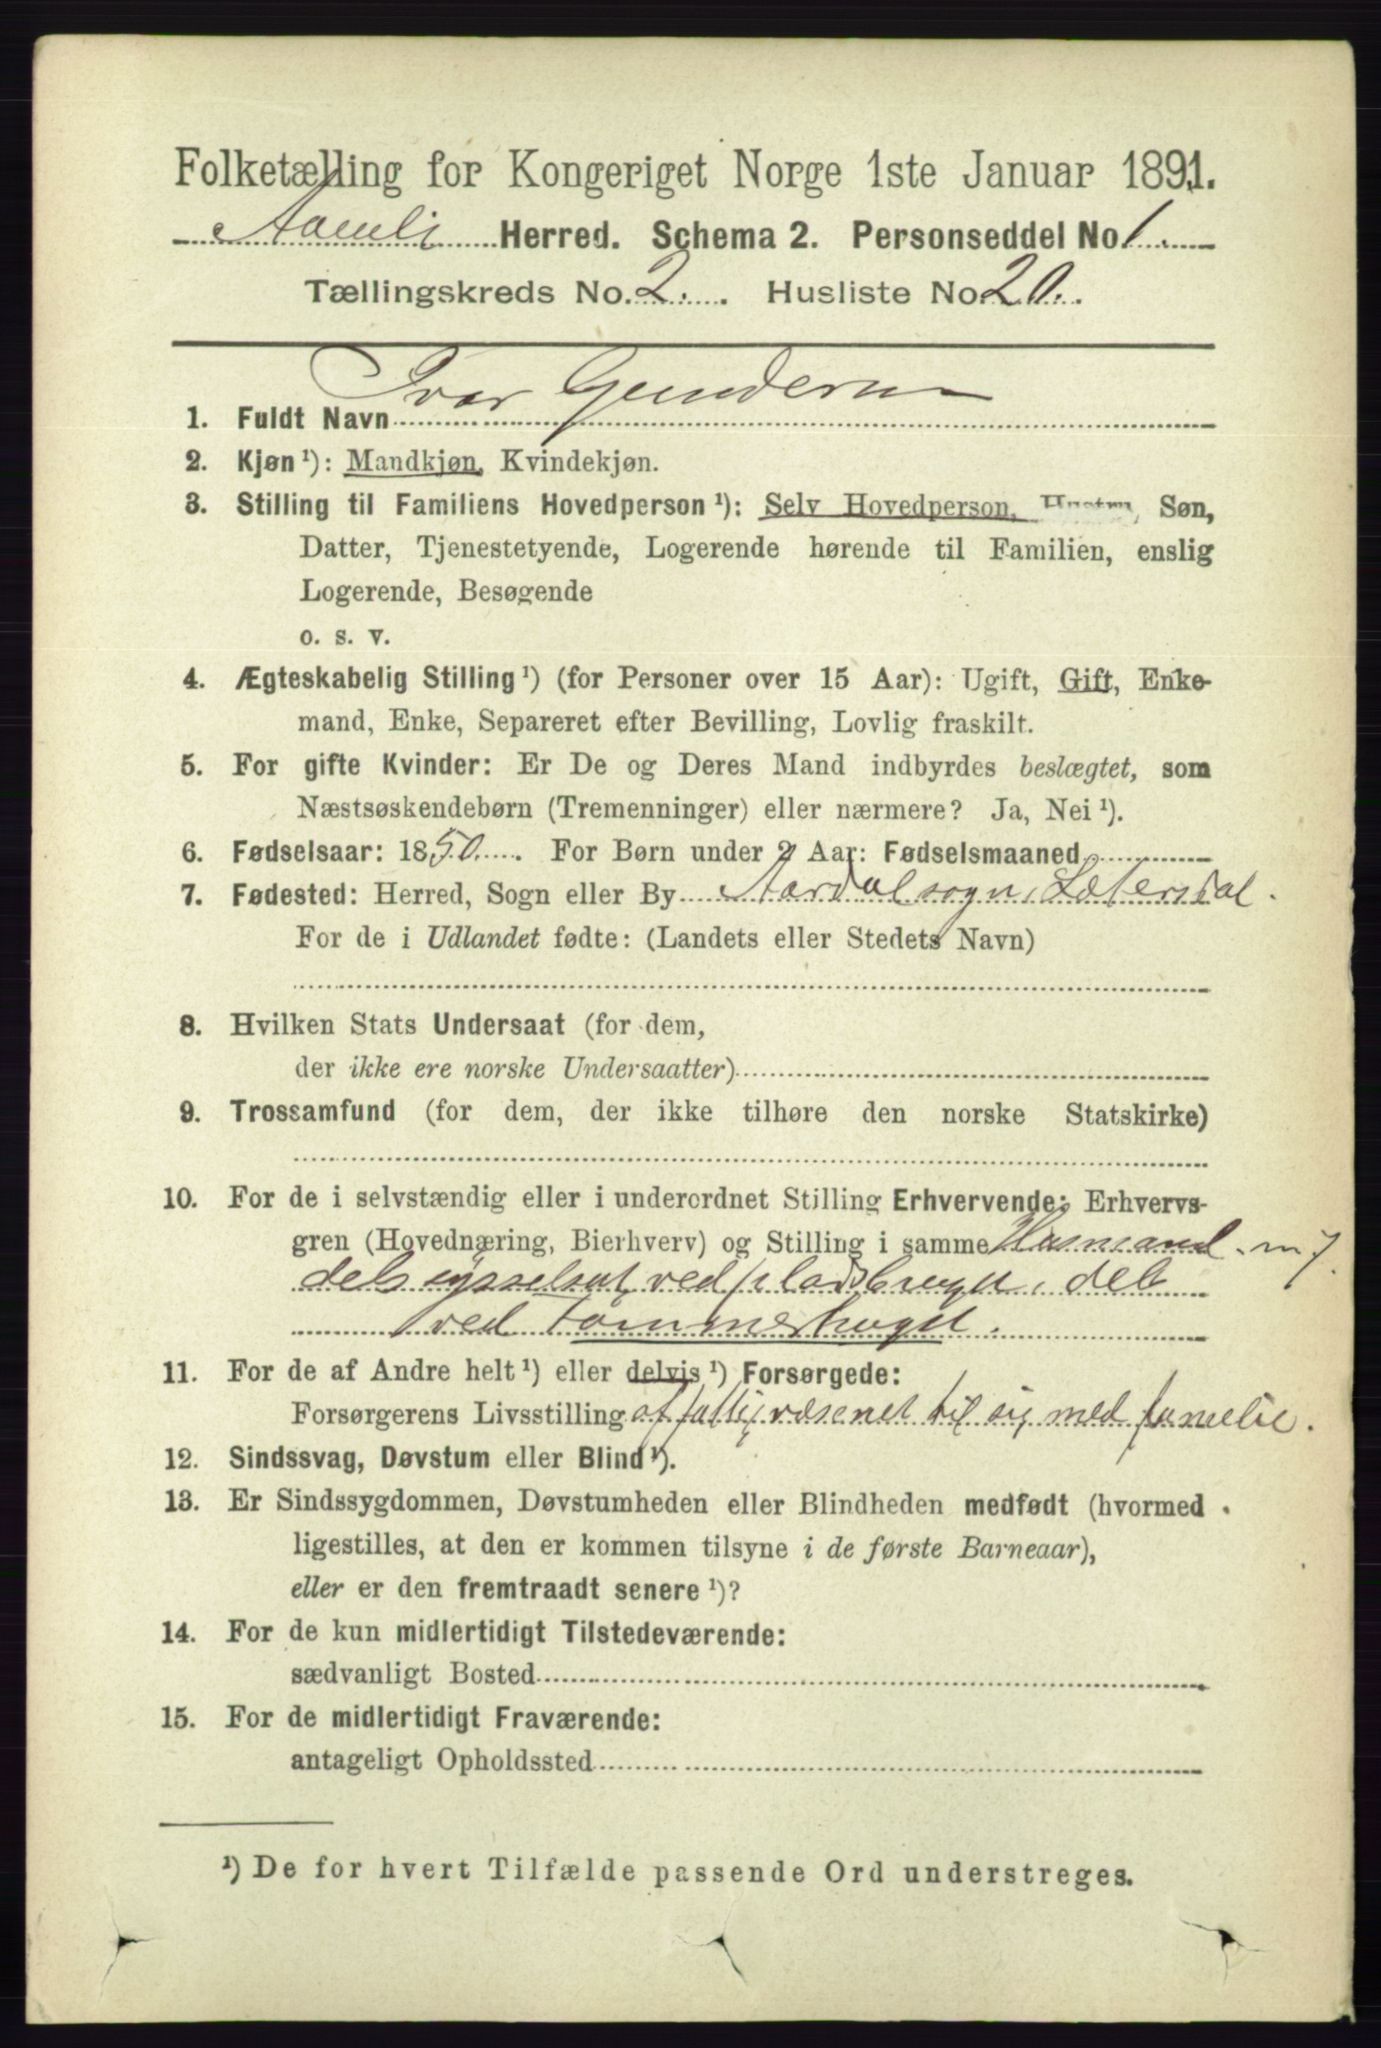 Folketælling for Kongeriget Norge 1ste Januar 1891.
Aamli Herred. Schema 2. Personseddel No 1.
Tællingskreds No. 2. Husliste No. 20.
1. Fuldt Navn Ivar Gundersen
2. Kjøn ¹): Mandkjøn, Kvindekjøn.
3. Stilling til Familiens Hovedperson ¹): Selv Hovedperson, Hustru, Søn,
Datter, Tjenestetyende, Logerende hørende til Familien, enslig
Logerende, Besøgende
o. s. v.
4. Ægteskabelig Stilling ¹) (for Personer over 15 Aar): Ugift, Gift, Enke-
mand, Enke, Separeret efter Bevilling, Lovlig fraskilt.
5. For gifte Kvinder: Er De og Deres Mand indbyrdes beslægtet, som
Næstsøskendebørn (Tremenninger) eller nærmere? Ja, Nei ¹).
6. Fødselsaar: 1850. For Børn under 2 Aar: Fødselsmaaned
7. Fødested: Herred, Sogn eller By Aardal sogn, Sætersdal.
For de i Udlandet fødte: (Landets eller Stedets Navn)
8. Hvilken Stats Undersaat (for dem,
der ikke ere norske Undersaatter)
9. Trossamfund (for dem, der ikke tilhøre den norske Statskirke)
10. For de i selvstændig eller i underordnet Stilling Erhvervende: Erhvervs-
gren (Hovednæring, Bierhverv) og Stilling i samme Husmand m. J.
dels sysselsat ved pladsbruget, dels
ved Tømmerhugst.
11. For de af Andre helt ¹) eller delvis ¹) Forsørgede:
Forsørgerens Livsstilling af fattigvæsenet til sig med familie.
12. Sindssvag, Døvstum eller Blind ¹).
13. Er Sindssygdommen, Døvstumheden eller Blindheden medfødt (hvormed
ligestilles, at den er kommen tilsyne i de første Barneaar),
eller er den fremtraadt senere ¹)?
14. For de kun midlertidigt Tilstedeværende:
sædvanligt Bosted
15. For de midlertidigt Fraværende:
antageligt Opholdssted
¹) De for hvert Tilfælde passende Ord understreges.